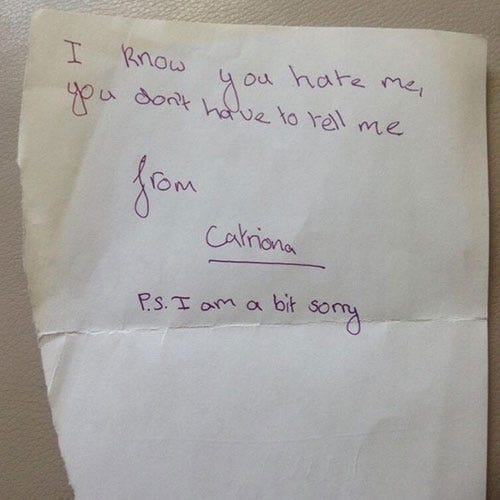 I know you hate me,
you don't have to tell me
from
Catriona
P.S. I am a bit sorry